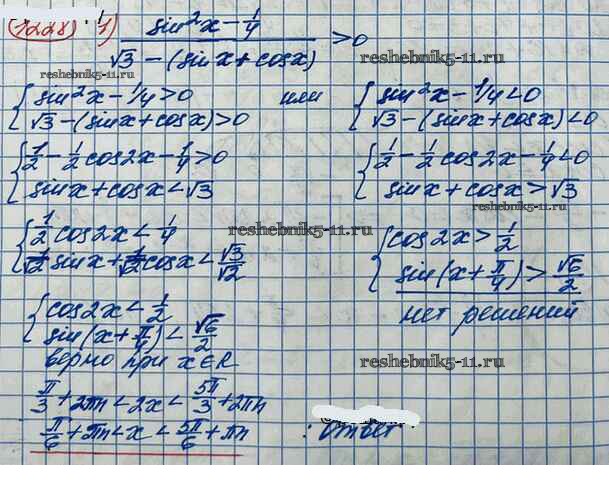 1228) 1) (sin²x - 1/4) / (√3 - (sinx + cosx)) > 0
reshebnik5-11.ru
reshebnik5-11.ru
{ sin²x - 1/4 > 0
√3 - (sinx + cosx) > 0
или
{ sin²x - 1/4 < 0
√3 - (sinx + cosx) < 0
{ 1/2 - 1/2 cos2x - 1/4 > 0
sinx + cosx < √3
{ 1/2 - 1/2 cos2x - 1/4 < 0
sinx + cosx > √3
reshebnik5-11.ru
{ 1/2 cos2x < 1/4
1/√2 sinx + 1/√2 cosx < √3/√2
{ cos2x > 1/2
sin(x + π/4) > √6/2
нет решений
{ cos2x < 1/2
sin(x + π/4) < √6/2
верно при x∈R
reshebnik5-11.ru
π/3 + 2πn < 2x < 5π/3 + 2πn
π/6 + πn < x < 5π/6 + πn
: ответ